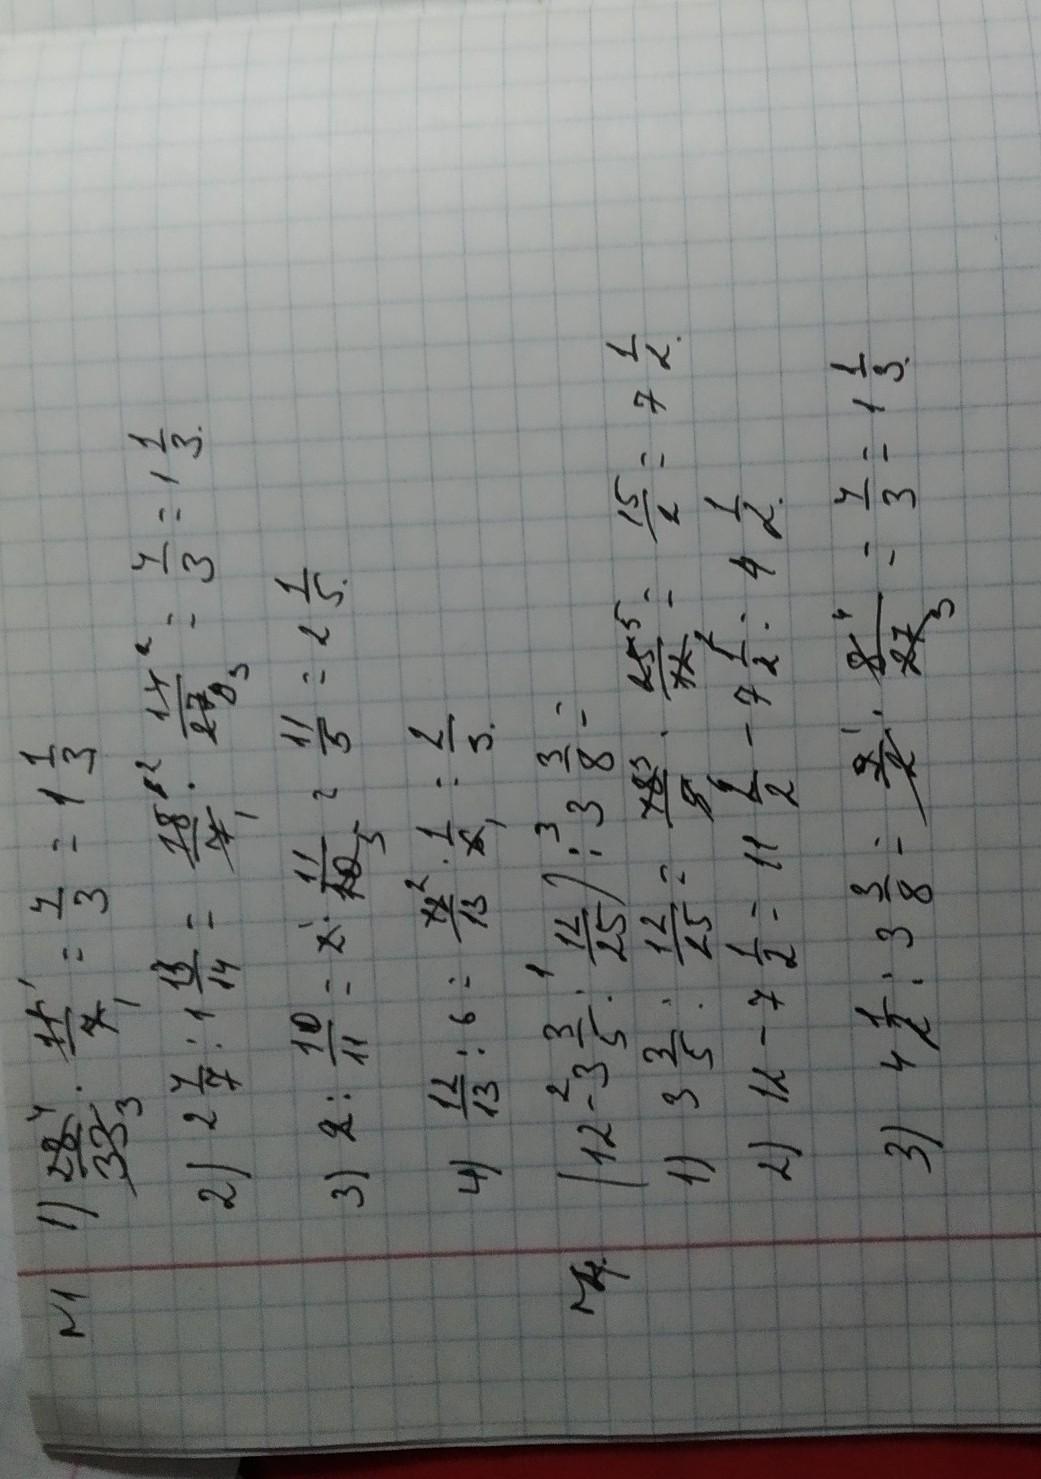 N1 1) 28/33 · 11/7 = 4/3 = 1 1/3
2) 2 4/7 : 1 13/14 = 18/7 · 14/27 = 4/3 = 1 1/3.
3) 2 : 10/11 = 2 · 11/10 = 11/5 = 2 1/5.
4) 12/13 : 6 = 12/13 · 1/6 = 2/13.
(12 - 3 3/5 : 12/25) : 3 3/8 =
1) 3 3/5 : 12/25 = 18/5 · 25/12 = 15/2 = 7 1/2.
2) 12 - 7 1/2 = 11 2/2 - 7 1/2 = 4 1/2.
3) 4 1/2 : 3 3/8 = 9/2 · 8/27 = 4/3 = 1 1/3.